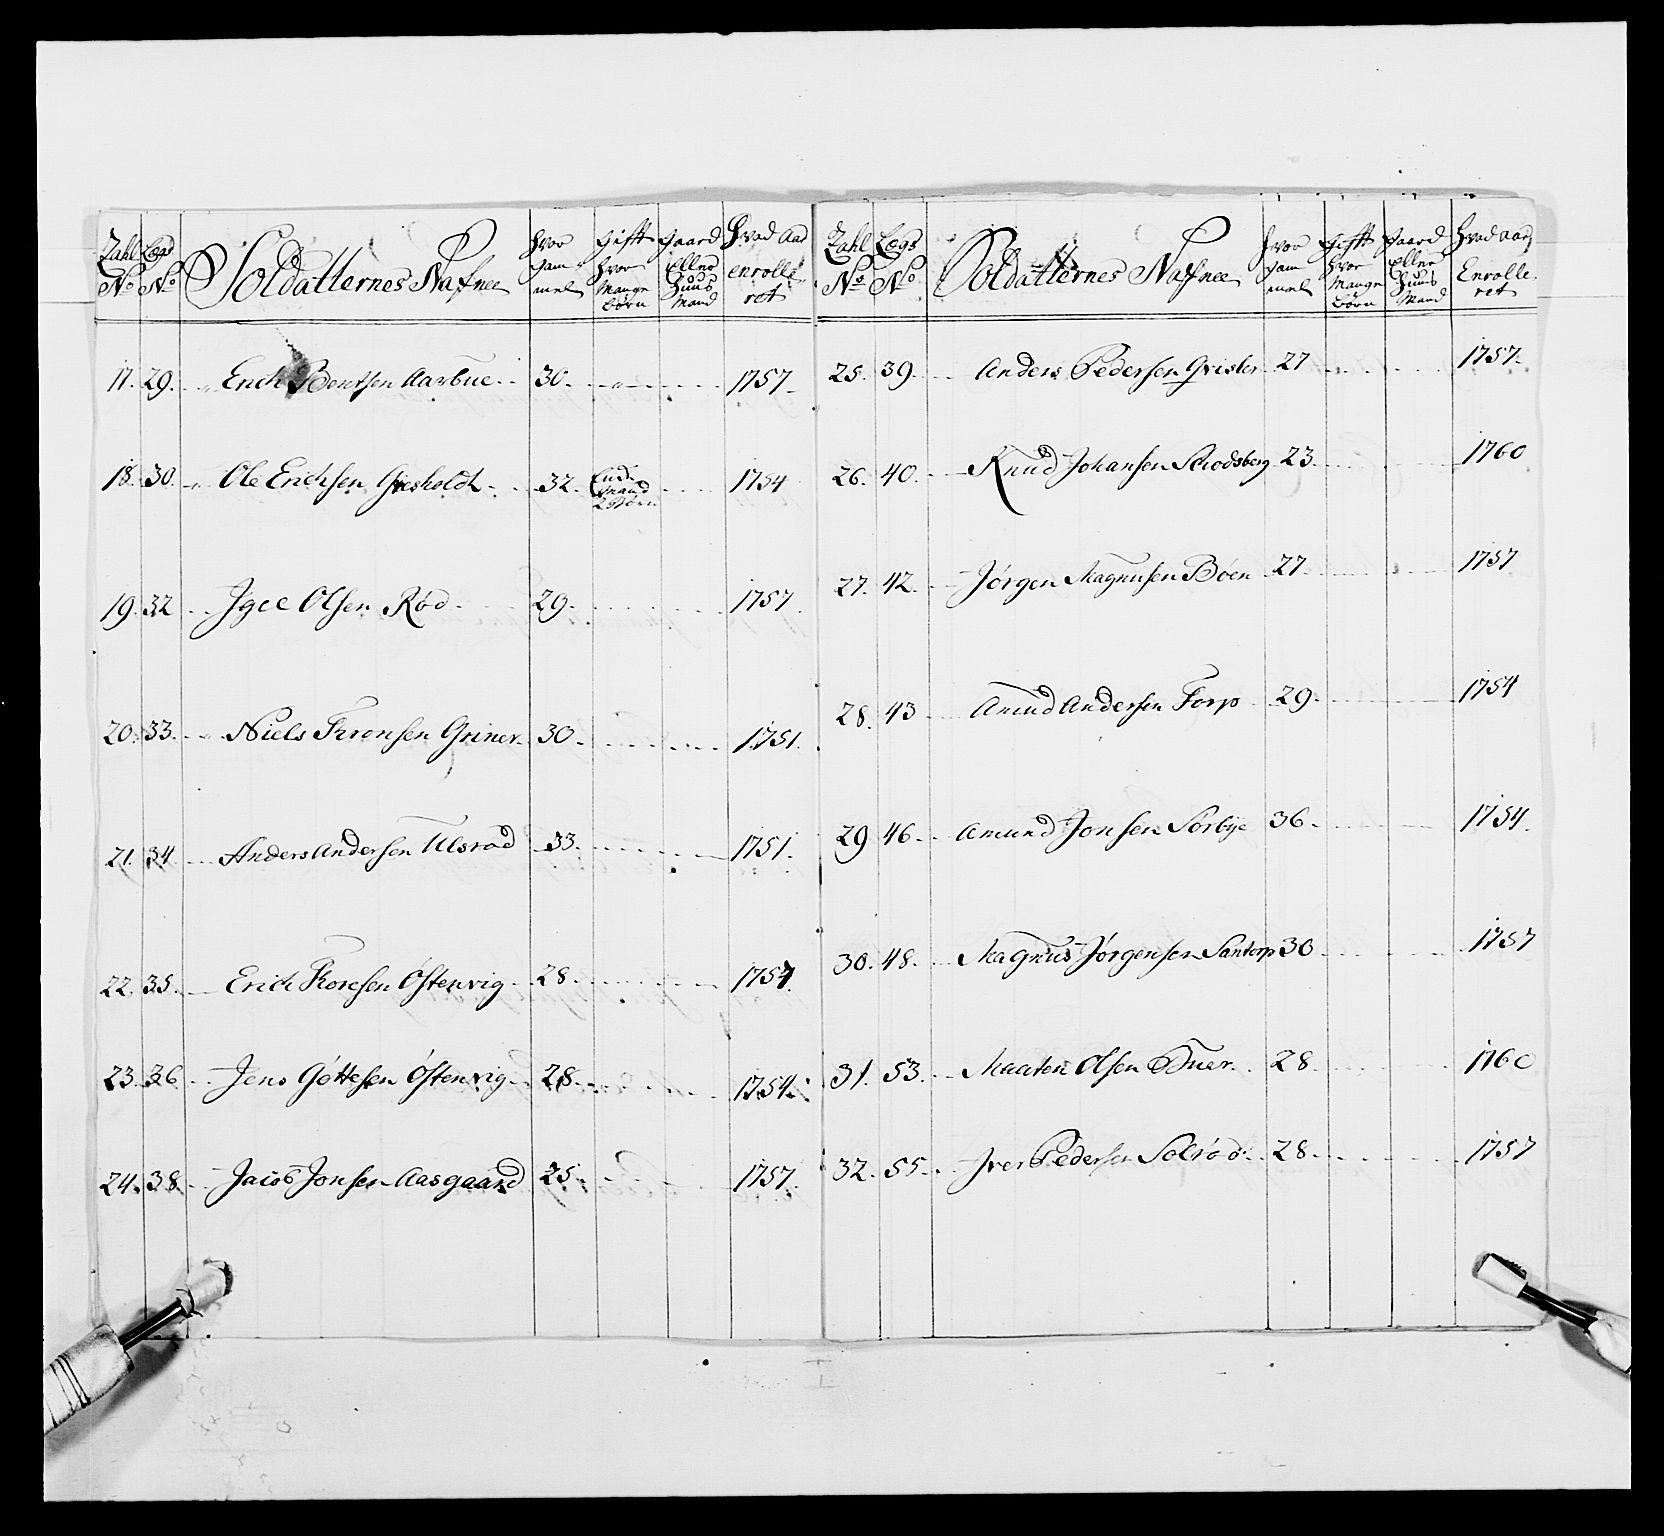 Zahl No Legs No Soldatternes Nafne hvor gammel Gift hvor mange børn Gaard eller Huus Mand hvad aar enrolle ret
17. 29. Erich Bentsen Aarbue 30. 1757
18. 30. Ole Erichsen Gresholdt 32. Enche mand 2 Børn 1754
19. 32 Igee Olsen Rød 29. 1757
20. 33. Niels Throensen Griner 30. 1751.
21. 34 Anders Andersen Ulsrød 33. 1751.
22. 35. Erich Thoresen Østenvig 28. 1757
23. 36 Jens Gøttesen Østenvig 28. 1754.
24. 38. Jacob Jonsen Aasgaard 25. 1757.
Zahl No Legs No Soldatternes Nafne hvor gam mel Gifft hvor mange børn Gaard Eller Huus Mand hvad aar Enrolle ret
25. 39. Anders Pedersen Grisler 27 1757
26. 40. Knud Johansen Skiodsberg 23 1760
27. 42. Jørgen Magnusen Böen 27 1757
28. 43 Amund Andersen Torp 29. 1754
29 46 Amund Jonsen Sørbye 36 1754.
30. 48. Magnus Jørgensen Santorp 30 1757
31. 53. Maaten Olsen 28 1760
32. 55. Iver Pedersen Solrød 28 1757